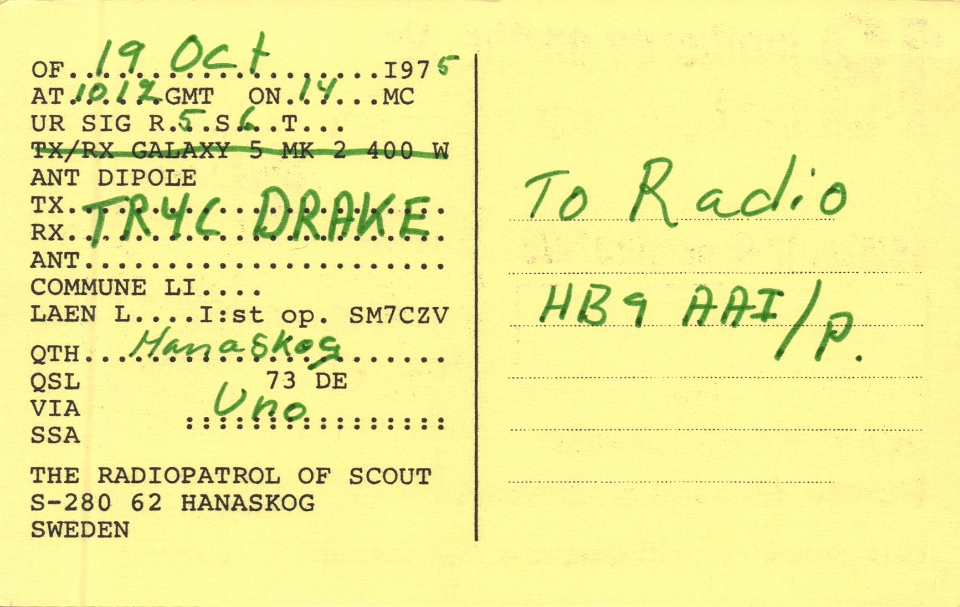 OF....19 Oct....I975
AT.1012.GMT ON.14...MC
UR SIG R.5.S6..T...
TX/RX GALAXY 5 MK 2 400 W
ANT DIPOLE
TX..TR4C DRAKE
RX..
ANT......................
COMMUNE LI....
LAEN L....I:st op. SM7CZV
QTH...Hanaskog......
QSL 73 DE
VIA Uno
SSA
THE RADIOPATROL OF SCOUT
S-280 62 HANASKOG
SWEDEN
To Radio
HB9 AAI/p.